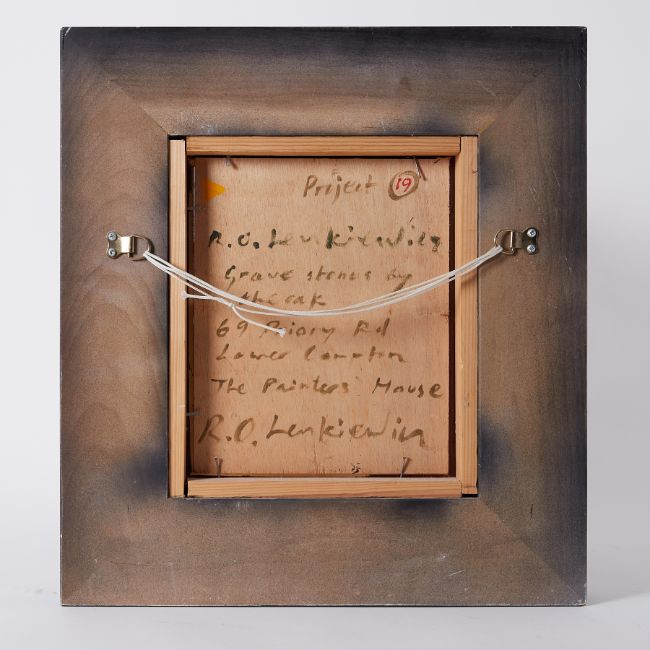 Project 19
R.O. Lenkiewicz
Grave stones by
the oak
69 Priory Rd
Lower Compton
The Painters' House
R.O. Lenkiewicz